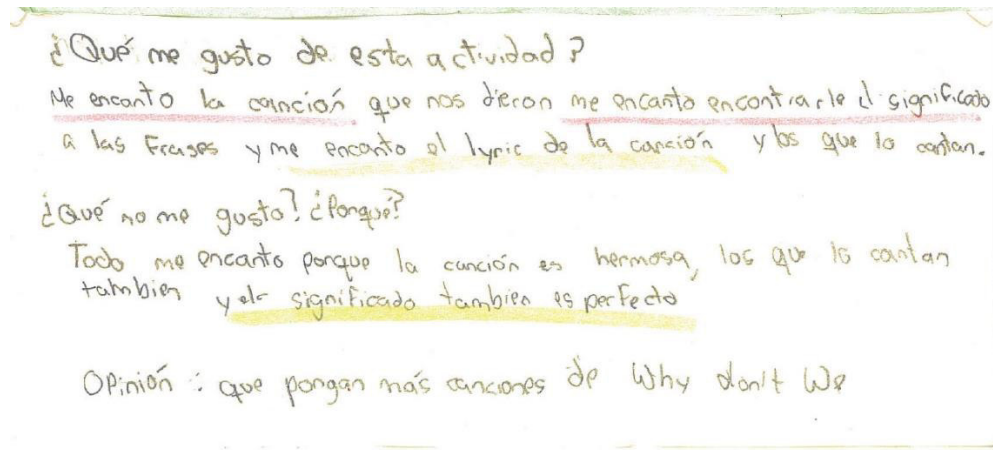 ¿Qué me gusto de esta actividad?
Me encanto la canción que nos dieron me encanto encontrarle el significado
a las Frases y me encanto el lyric de la canción y los que la cantan.
¿Qué no me gusto? ¿Porqué?
Todo me encanto porque la canción es hermosa, los que la cantan
tambien y el significado tambien es perfecto
Opinión : que pongan más canciones de Why don't We